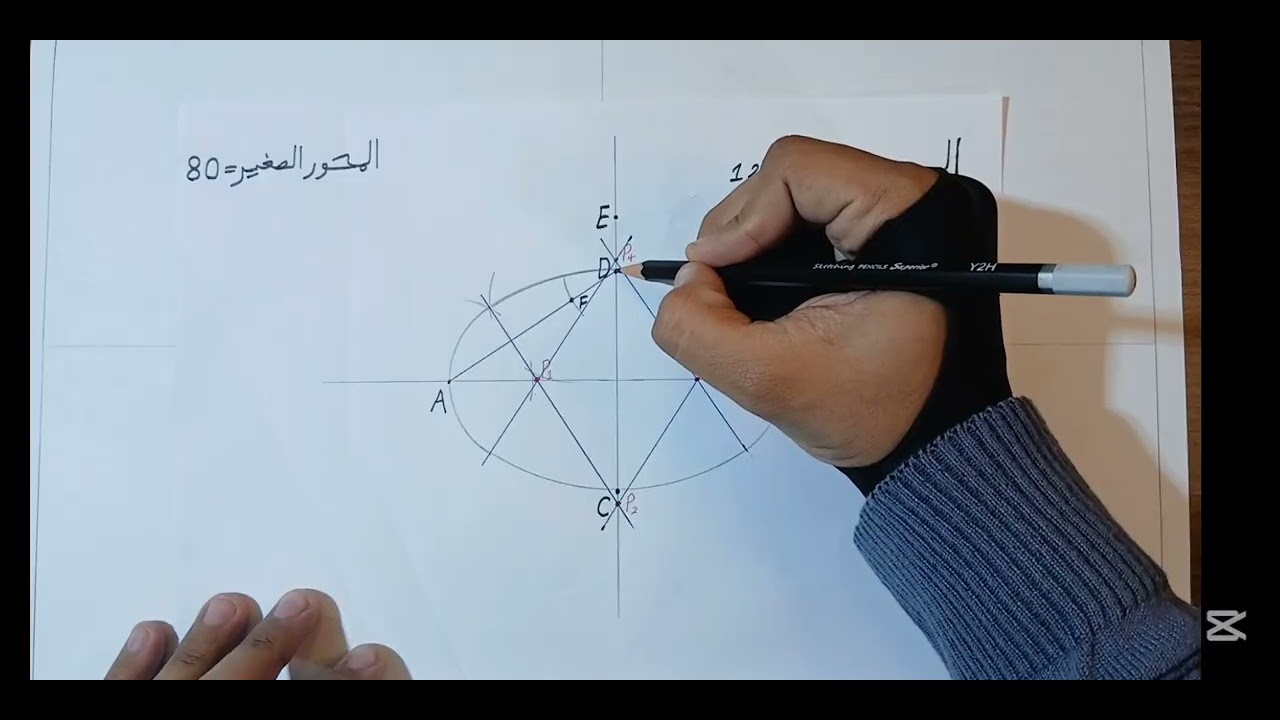 المحور الصغير=80
12
E
P4
D
F
P1
A
C
P2
Sketching PENCILS Superior® Y2H